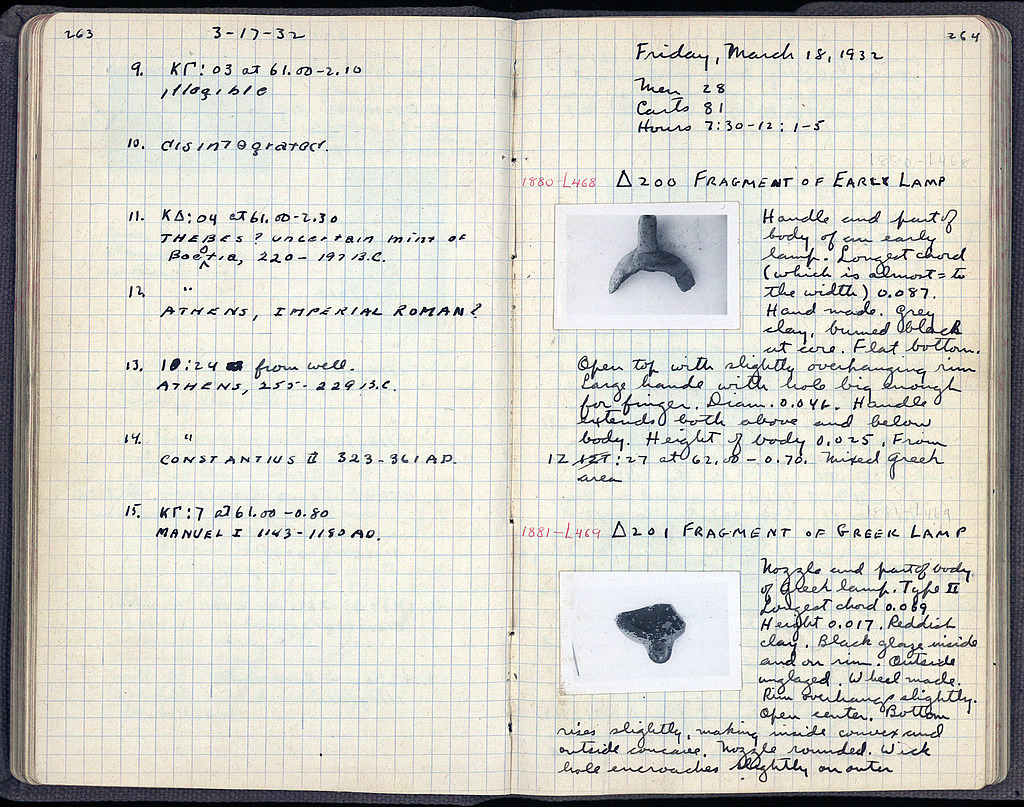 263
3-17-32
9. ΚΓ: 03 at 61.00-2.10
illegible
10. disintegrated.
11. ΚΔ: 04 at 61.00-2.30
THEBES? uncertain mint of
Boeotia, 220-197 B.C.
12. "
ATHENS, IMPERIAL ROMAN?
13. 10:24 from well.
ATHENS, 255-229 B.C.
14. "
CONSTANTIUS II 323-361 A.D.
15. ΚΓ: 7 at 61.00-0.80
MANUEL I 1143-1180 AD.
264
Friday, March 18, 1932
Men 28
Carts 81
Hours 7:30-12: 1-5
1880-L468
1880-L468 Δ200 FRAGMENT OF EARLY LAMP
Handle and part of
body of an early
lamp. Longest chord
(which is almost = to
the width) 0.087.
Hand made. Grey
clay, burned black
at core. Flat bottom.
Open top with slightly overhanging rim
Large hande with hole big enough
for finger. Diam. 0.046. Handle
extends both above and below
body. Height of body 0.025. From
12 :27 at 62.00-0.70. Mixed Greek
area
1881-L469
1881-L469 Δ201 FRAGMENT OF GREEK LAMP
Nozzle and part of body
of Greek lamp. Type II
Longest chord 0.069
Height 0.017. Reddish
clay. Black glaze inside
and on rim. Outside
unglazed. Wheel made.
Rim overhangs slightly.
Open center. Bottom
rises slightly, making inside convex and
outside concave. Nozzle rounded. Wick
hole encroaches slightly on outer